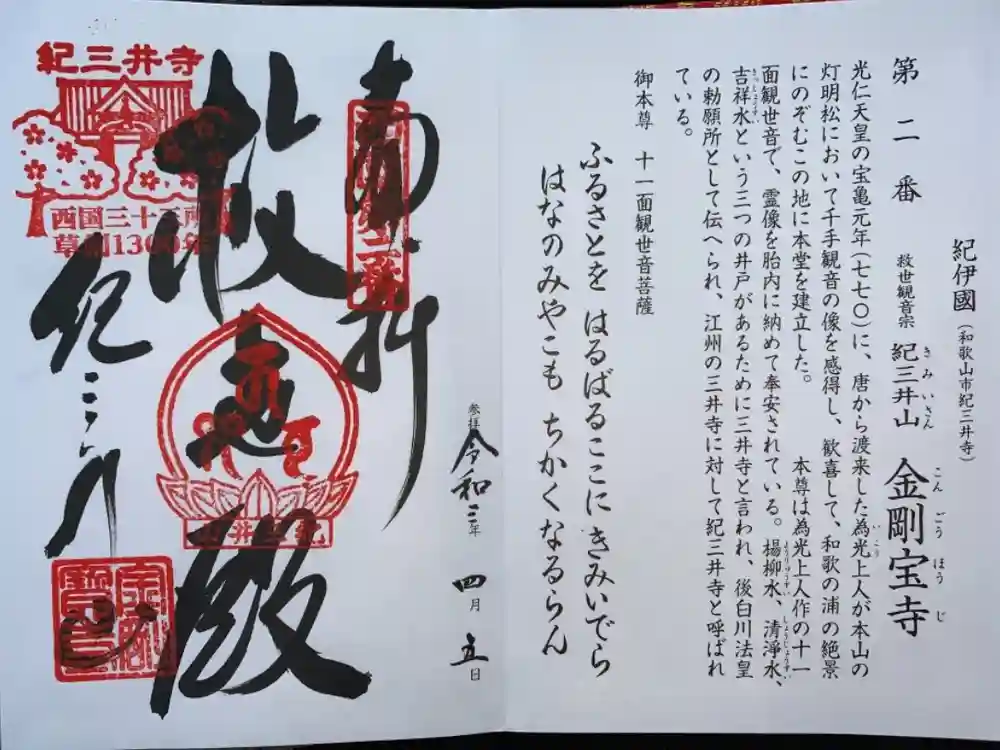 紀伊國(和歌山市紀三井寺)
第二番 救世観音宗 紀三井山 金剛宝寺
きみいさん こんごうほうじ
光仁天皇の宝亀元年(七七〇)に、唐から渡来した為光上人が本山の
いこう
灯明松において千手観音の像を感得し、歓喜して、和歌の浦の絶景
にのぞむこの地に本堂を建立した。 本尊は為光上人作の十一
面観世音で、霊像を胎内に納めて奉安されている。楊柳水、清浄水、
ようりゅうすい しょうじょうすい
吉祥水という三つの井戸があるために三井寺と言われ、後白川法皇
きっしょうすい
の勅願所として伝へられ、江州の三井寺に対して紀三井寺と呼ばれ
ている。
御本尊 十一面観世音菩薩
ふるさとを はるばるここに きみいでら
はなのみやこも ちかくなるらん
参拝 令和三年 四月 五日
奉拝
救世殿
紀三井寺
紀三井寺
西国三十三所
草創1300年